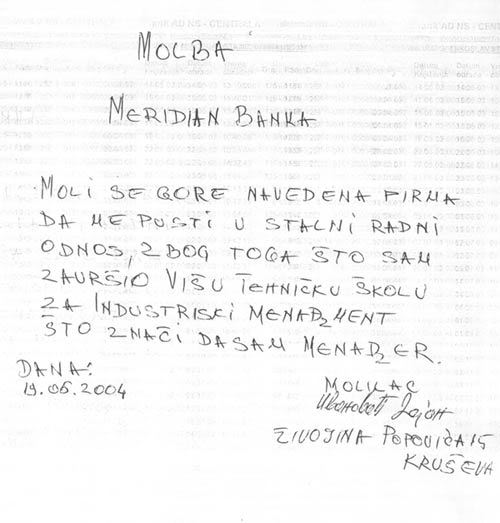 MOLBA
MERIDIAN BANKA
MOLI SE GORE NAVEDENA FIRMA
DA ME PUSTI U STALNI RADNI
ODNOS, ZBOG TOGA ŠTO SAM
ZAVRŠIO VIŠU TEHNIČKU ŠKOLU
ZA INDUSTRISKI MENADZMENT
ŠTO ZNAČI DASAM MENADZER.
DANA:
19.05.2004
MOLILAC
ŽIVOJINA POPOVIĆA 15
KRUŠEVA